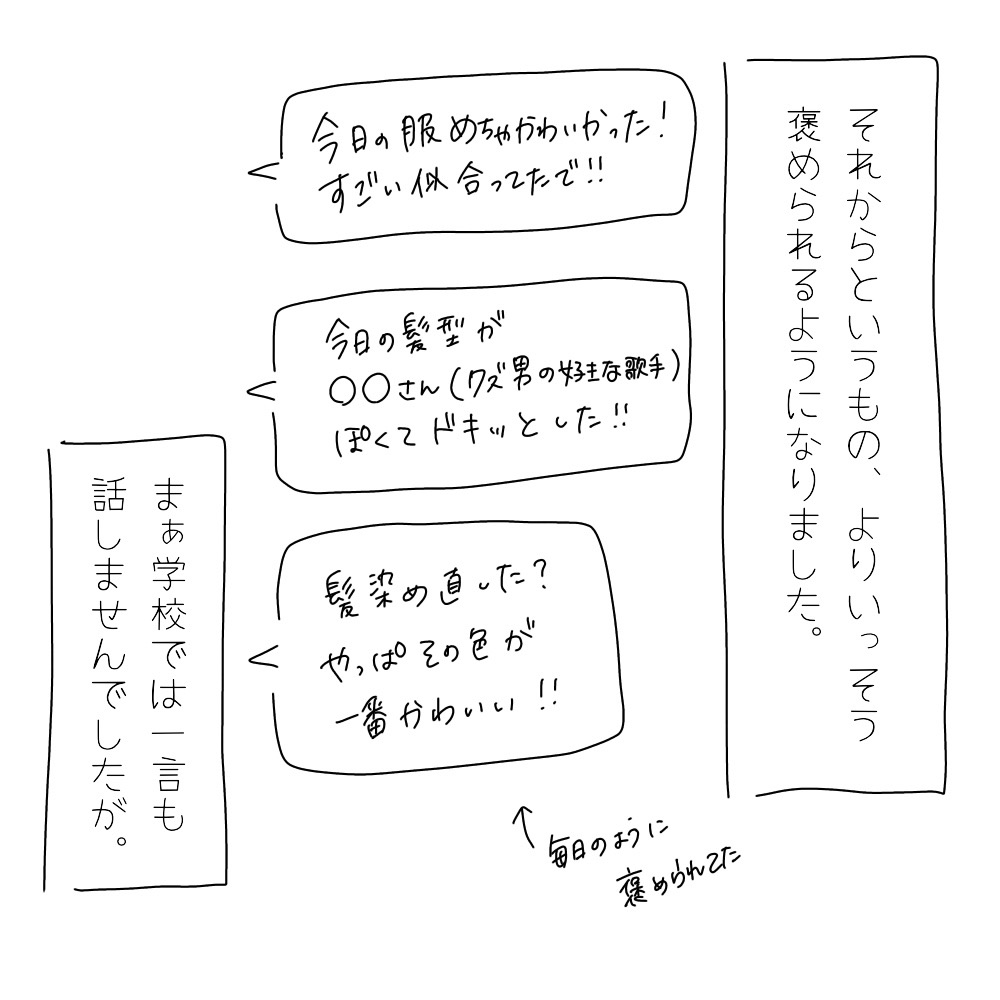 それからというもの、よりいっそう
褒められるようになりました。
今日の服めちゃかわいかった!
すごい似合ってたで!!
今日の髪型が
○○さん(クズ男の好きな歌手)
ぽくてドキッとした!!
髪染め直した?
やっぱその色が
一番かわいい!!
↑毎日のように
褒められてた
まぁ学校では一言も
話しませんでしたが。